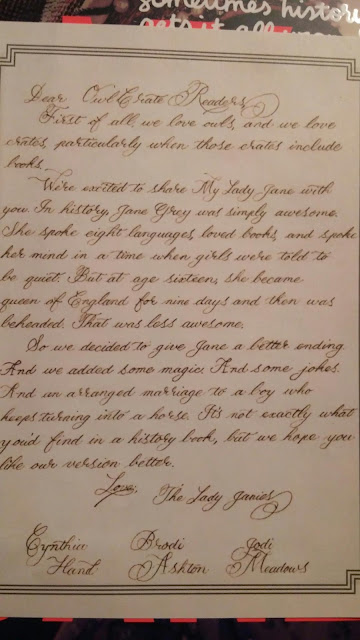 sometimes history
gets it all
Dear OwlCrate Readers,
First of all, we love owls, and we love
crates, particularly when those crates include
books.
We're excited to share My Lady Jane with
you. In history, Jane Grey was simply awesome.
She spoke eight languages, loved books, and spoke
her mind in a time when girls were told to
be quiet. But at age sixteen, she became
queen of England for nine days and then was
beheaded. That was less awesome.
So we decided to give Jane a better ending.
And we added some magic. And some jokes.
And an arranged marriage to a boy who
keeps turning into a horse. It's not exactly what
you'd find in a history book, but we hope you
like our version better.
Love,
The Lady Janies
Cynthia Brodi Jodi
Hand Ashton Meadows